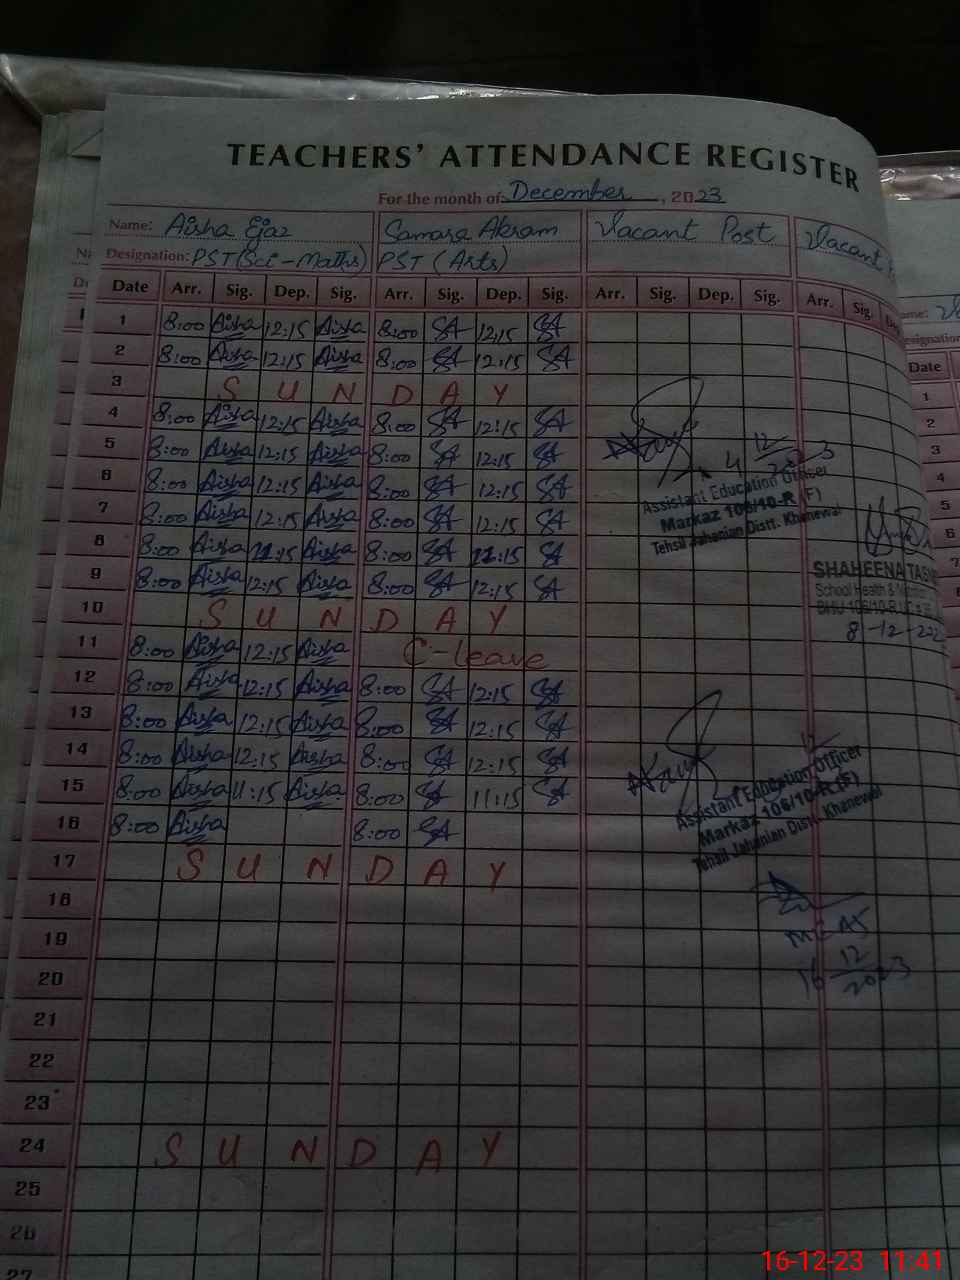 TEACHERS' ATTENDANCE REGISTER
For the month of December, 2023
Name: Aisha Ejaz Samara Akram Vacant Post Vacant
Designation: PST(Sci-Maths) PST (Arts)
Date Arr. Sig. Dep. Sig. Arr. Sig. Dep. Sig. Arr. Sig. Dep. Sig. Arr. Sig.
1 8:00 Aisha 12:15 Aisha 8:00 SA 12:15 SA
2 8:00 Aisha 12:15 Aisha 8:00 SA 12:15 SA
3 S U N D A Y
4 8:00 Aisha 12:15 Aisha 8:00 SA 12:15 SA
5 8:00 Aisha 12:15 Aisha 8:00 SA 12:15 SA
6 8:00 Aisha 12:15 Aisha 8:00 SA 12:15 SA
7 8:00 Aisha 12:15 Aisha 8:00 SA 12:15 SA
8 8:00 Aisha :15 Aisha 8:00 SA :15 SA
9 8:00 Aisha 12:15 Aisha 8:00 SA 12:15 SA
10 S U N D A Y
11 8:00 Aisha 12:15 Aisha C-leave
12 8:00 Aisha 12:15 Aisha 8:00 SA 12:15 SA
13 8:00 Aisha 12:15 Aisha 8:00 SA 12:15 SA
14 8:00 Aisha 12:15 Aisha 8:00 SA 12:15 SA
15 8:00 Aisha 11:15 Aisha 8:00 SA 11:15 SA
16 8:00 Aisha 8:00 SA
17 S U N D A Y
18
19
20
21
22
23
24 S U N D A Y
25
26
27
4 12
2023
Assistant Education Officer
Markaz 106/10-R (F)
Tehsil Jahanian Distt. Khanewal
SHAHEENA TAS
School Health &
BHU 106/10-R
8-12-202
12
Assistant Education Officer
Markaz 106/10-R (F)
Tehsil Jahanian Distt. Khanewal
16 12
2023
ame:
esignation
Date
1
2
3
4
5
6
7
16-12-23 11.41